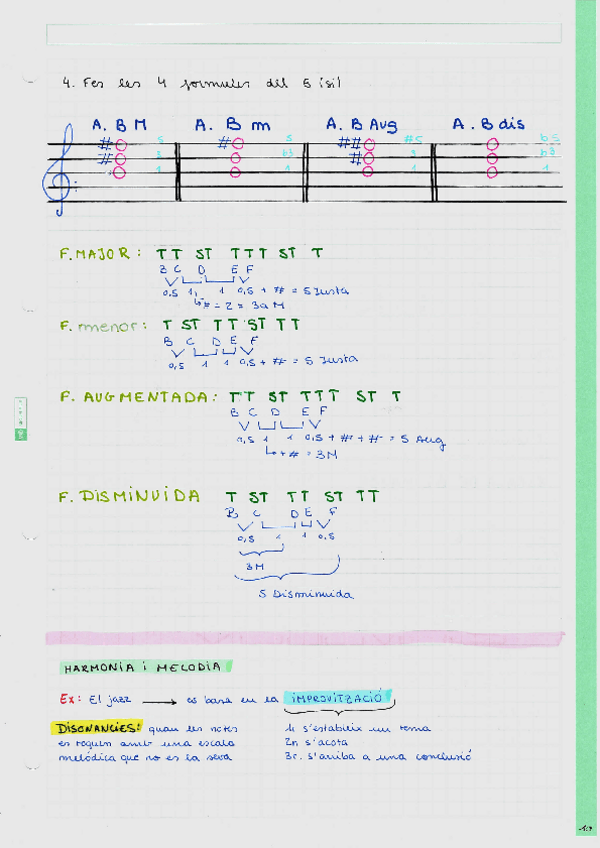 4. Fes les 4 formules del 5 (si)
A. B M A. B m A. B Aug A. B dis
# 5 # 5 ## #5 b5
# 3 b3 # 3 b3
1 1 1 1
F. MAJOR: TT ST TTT ST T
B C D E F
0,5 1 1 0,5 + # = 5 Justa
# = 2 = 3a M
F. menor: T ST TT ST TT
B C D E F
0,5 1 1 0,5 + # = 5 Justa
F. AUGMENTADA: TT ST TTT ST T
B C D E F
0,5 1 1 0,5 + # + # = 5 Aug
+ # = 3M
F. DISMINUIDA T ST TT ST TT
B C D E F
0,5 1 1 0,5
3M
5 Disminuida
HARMONIA i MELODIA
Ex: El jazz → es basa en la IMPROVITZACIÓ
DISONANCIES: quan les notes
es toquen amb una escala
melódica que no es la seva
1r s'estableix un tema
2n s'acota
3r. s'arriba a una conclusió